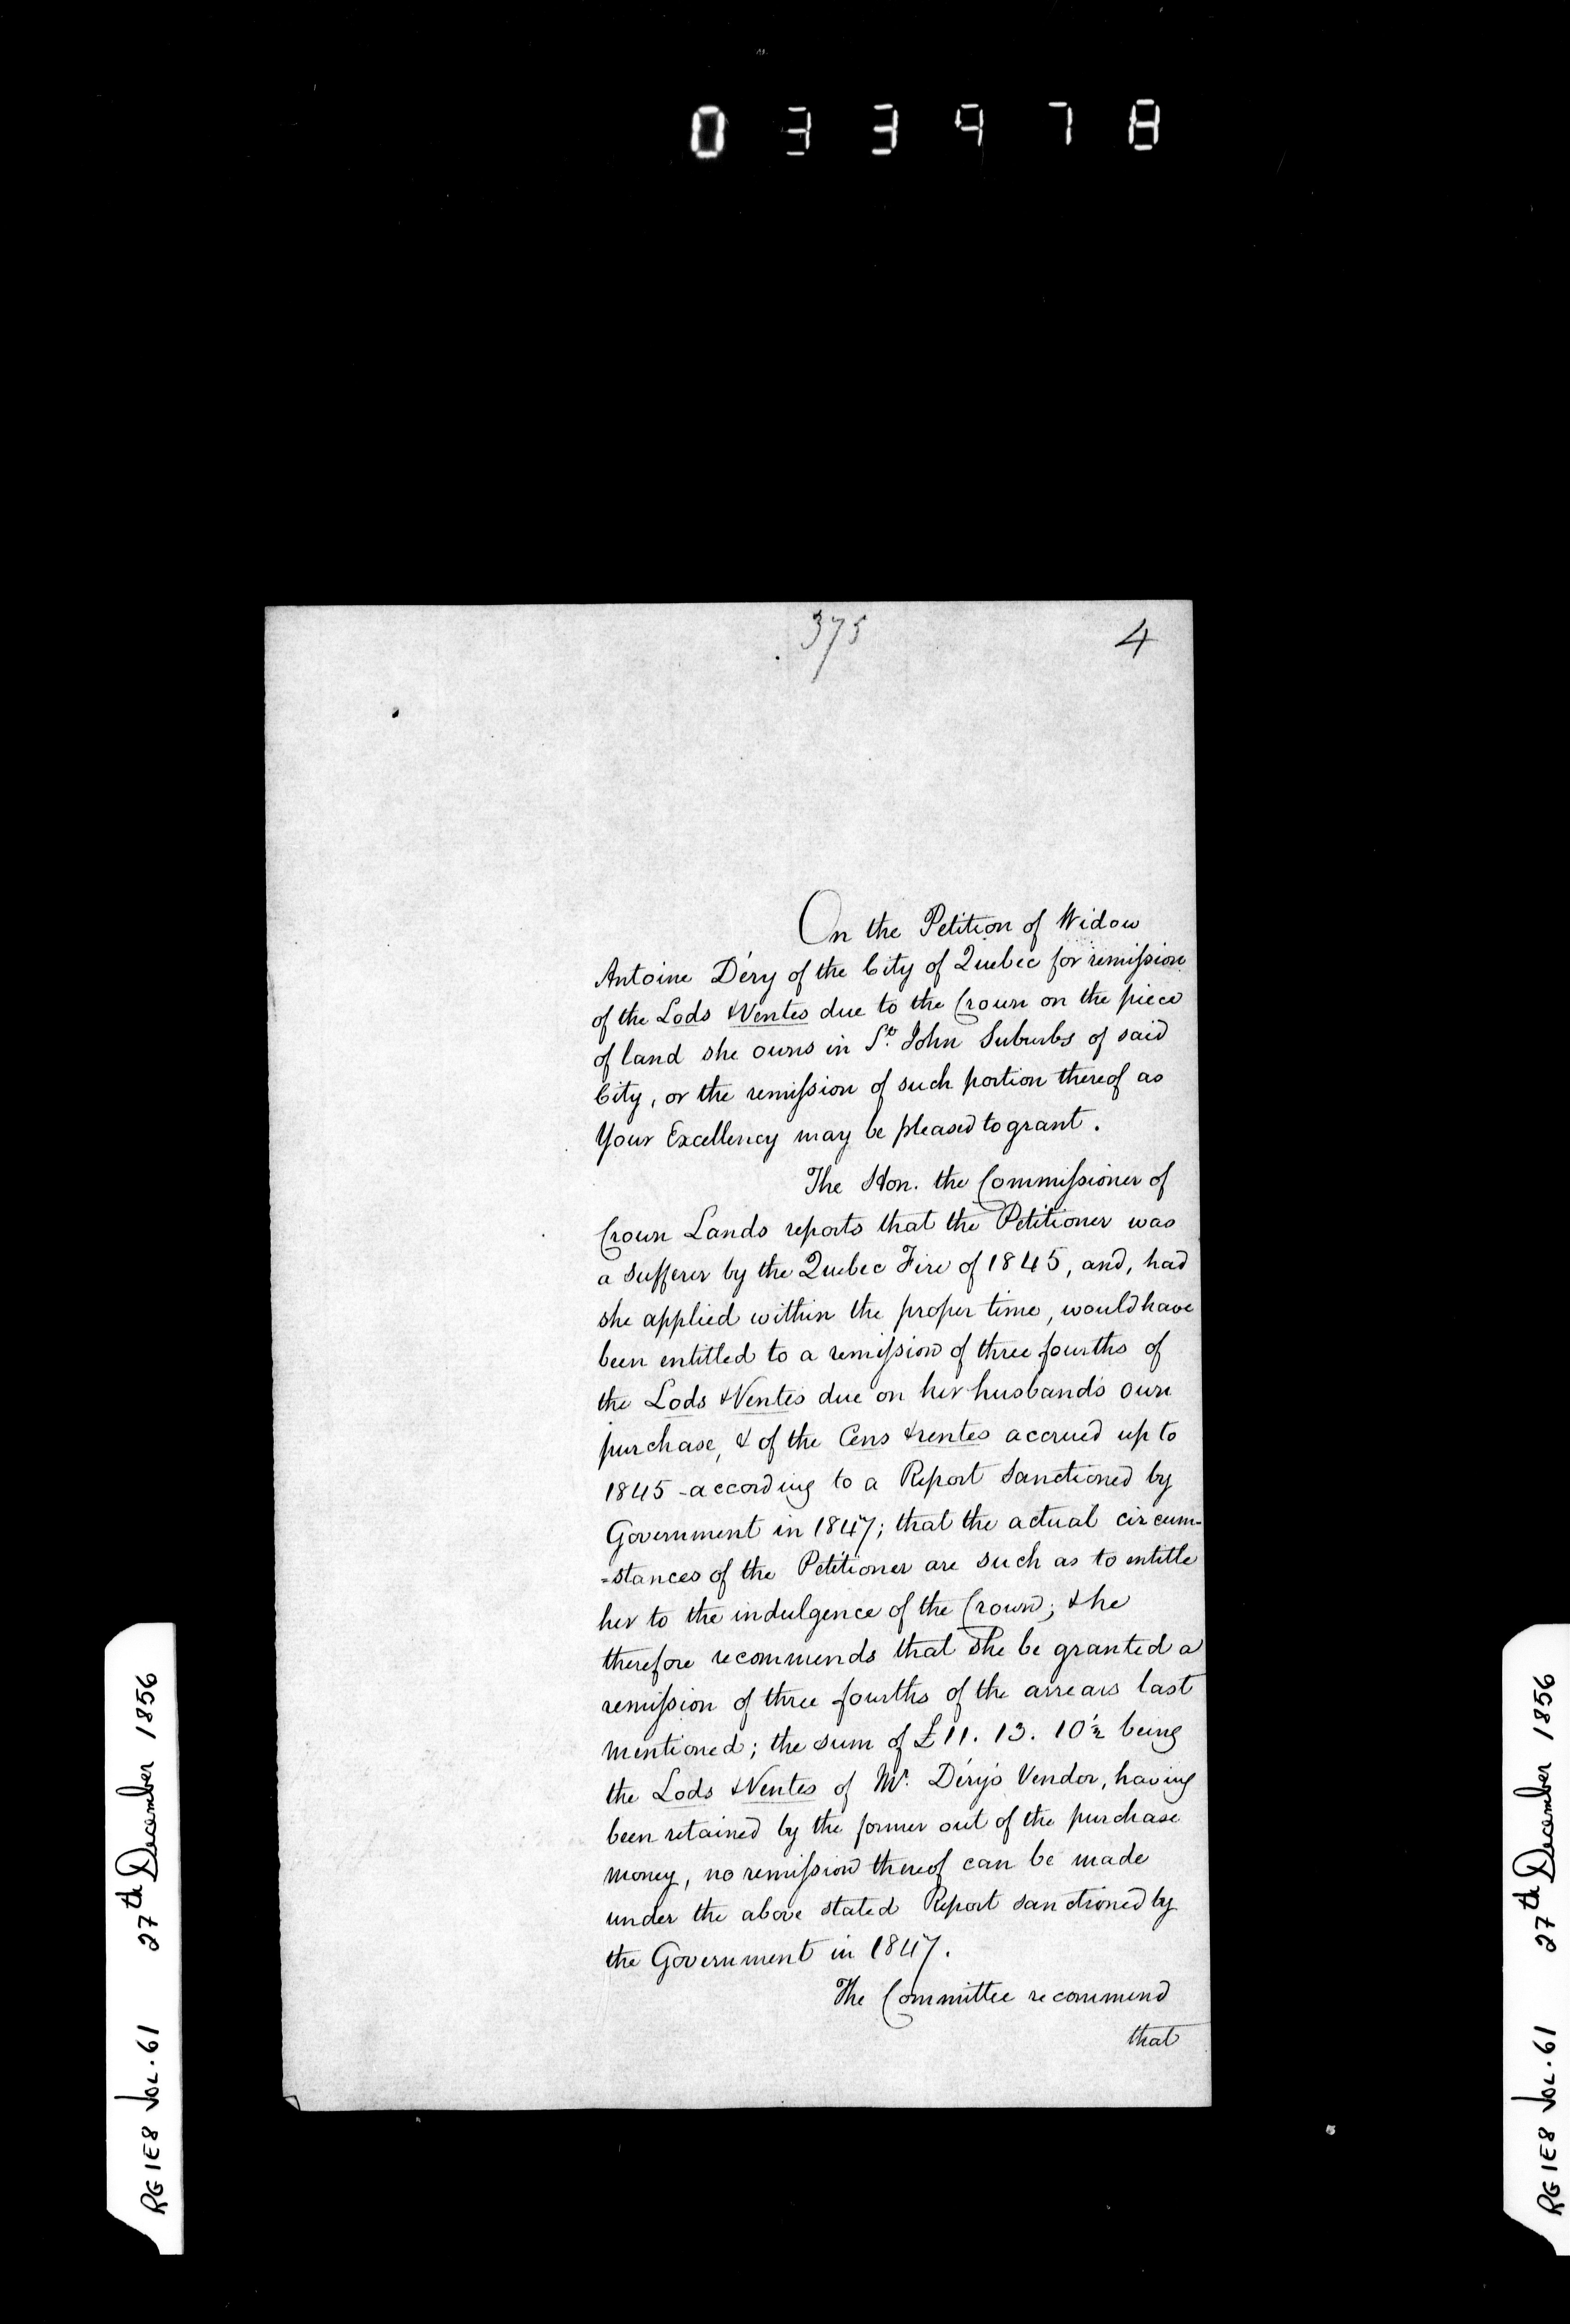 033978
375 4
On the Petition of Widow
Antoine Déry of the City of Quebec for remission
of the Lods & Ventes due to the Crown on the piece
of land she owns in St. John Suburbs of said
City, or the remission of such portion thereof as
Your Excellency may be pleased to grant.
The Hon. the Commissioner of
Crown Lands reports that the Petitioner was
a sufferer by the Quebec Fire of 1845, and, had
she applied within the proper time, would have
been entitled to a remission of three fourths of
the Lods & Ventes due on her husband's own
purchase, & of the Cens & rentes accrued up to
1845 - according to a Report sanctioned by
Government in 1847; that the actual circum-
=stances of the Petitioner are such as to entitle
her to the indulgence of the Crown; & he
therefore recommends that she be granted a
remission of three fourths of the arrears last
mentioned; the sum of £11. 13. 10½ being
the Lods & Ventes of Mr. Déry's Vendor, having
been retained by the former out of the purchase
money, no remission thereof can be made
under the above stated Report sanctioned by
the Government in 1847.
The Committee recommend
that
RG1E8 Vol. 61 27th December 1856
RG1E8 Vol. 61 27th December 1856